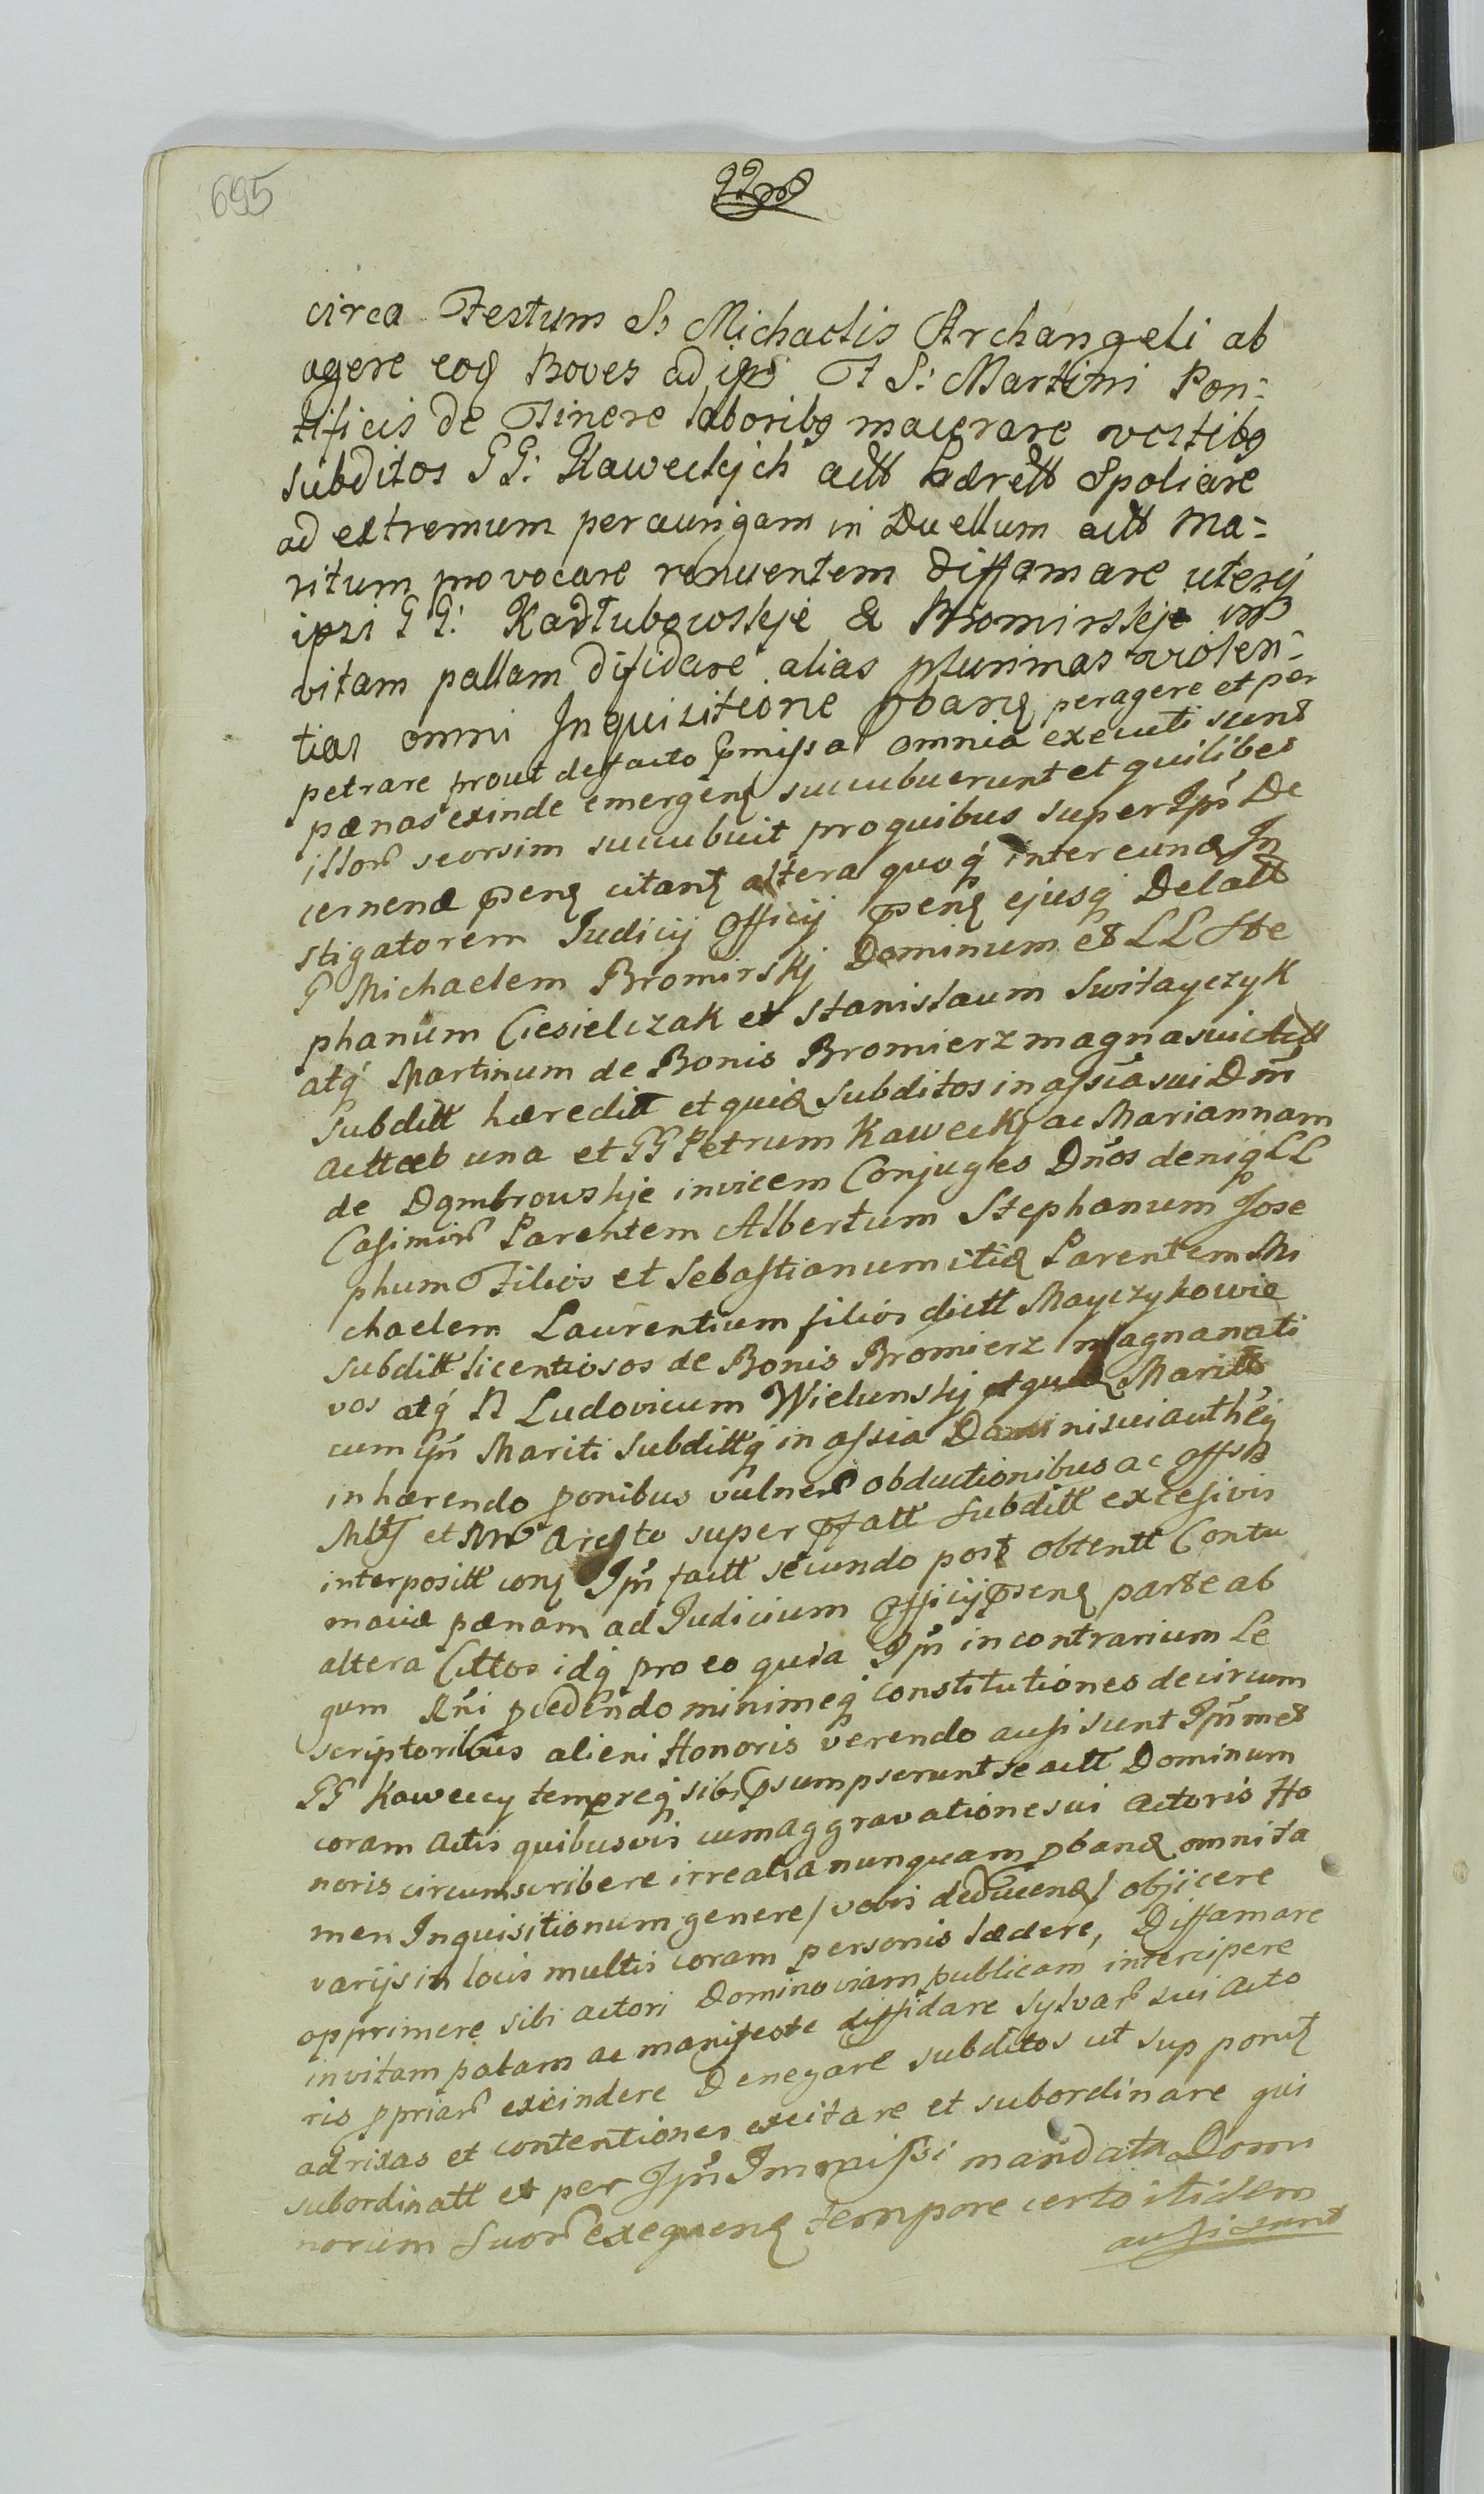 695
circa Festum S. Michaelis Archangeli ab
agere eosq Boves ad ips F S: Martini Pon:
tificis de Itinere laboribq macerare vestibq
subditos GG: Kaweckich actt hdrett Spoliare
ad extremum per aurigam in Duellum actt Ma:
ritum provocare renuentem diffamare uterq
ipsi GG: Kadłubowskje & Bromirskje in
vitam pallam difidare alias plurimas violen:
tias omni Inquisitione pbanq peragere et per
petrare prout de facto pmissa omnia executi sunt
pænas exinde emergenq succubuerunt et quilibet
illor seorsim succubuit pro quibus super Ipŝ De
cernend penq citantq altera quoq intercund In
stigatorem Judicij Officij penq ejusq Delatt
G Michaelem Bromirskj Dominum et LL Ste
phanum Ciesielczak et Stanislaum Switayczyk
atq Martinum de Bonis Bromierz magna suictt
Subditt hæreditt et quid Subditos in assia sui Dm̃
acttæb una et GG Petrum Kaweckj ac Mariannam
de Dąmbrowskje invicem Conjuges Dños deniq LL
Casimir Parentem Albertum Stephanum Jose
phum Filios et Sebastianum itid Parentem Mi
chaelem Laurentium filios dictt Mayczykowie
subditt licentiosos de Bonis Bromierz Magna nati
vos atq N Ludovicum Wielunskj Maritt
cum Ipñ Mariti Subdittq in assia Domini sui authẽq
inhærendo ponibus vulner obductionibus ac offss
et Aresto super pfatt Subditt excesivis
interpositt conq Ipñ factt secundo post obtentt Contu
maciæ pænam ad Judicium Officij psenq parte ab
altera Cittos idq pro eo quia Ipñ in contrarium Le
gum Rñi pcedendo minimeq constitutiones de circum
scriptoribus alieni Honoris verendo ausi sunt Ipñmet
GG Kaweccy tempreq sibi psumpserunt se actt Dominum
coram Actis quibusvis cum aggravatione sui Actoris Ho
noris circumscribere irrealia nunquam pband omni ta
men Inquisitionum genere / vobis deducend / objicere
varijs in locis multis coram personis lædere, Diffamare
opprimere sibi actori Domino viam publicam intercipere
in vitam palam ac manifeste diffidare sylvar sui Acto
ris ppriar excindere Denegare subditos ut sup ponitq
ad rixas et contentiones excitare et subordinare qui
subordinatt et per Ipñ Immissi mandata Domi
norum Suor exequenq tempore certo itidem
ausi sunt